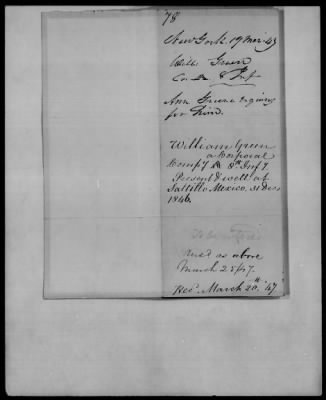 78
New York. 19 Mar. 47
Will. Green
Co. 8 Inf
Ann Green inquires
for him.
William Green
a Corporal
Comp'y 8th Inf'y.
Present & well at
Saltillo, Mexico, 31 Dec
1846.
as above
March 25/47.
Rec'd March 20th '47